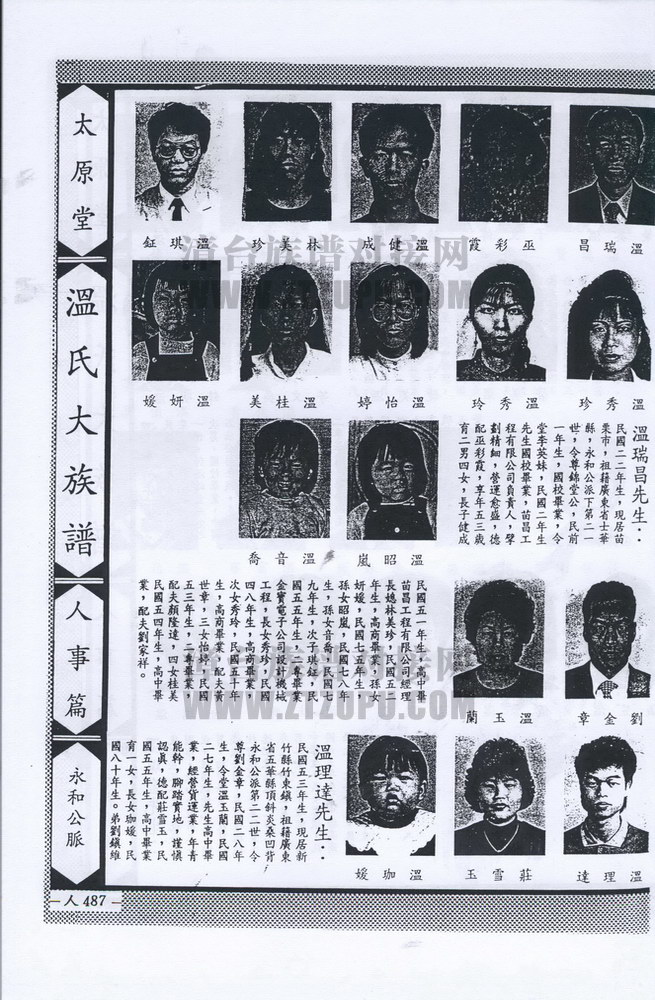 太原堂
溫氏大族譜
人事篇
永和公脈
人 487
溫瑞昌
巫彩霞
溫健成
林美珍
溫琪鉦
溫秀珍
溫秀玲
溫怡婷
溫桂美
溫妍媛
溫瑞昌先生：
民國二二年生，現居苗
栗市，祖籍廣東省士華
縣，永和公派下第二一
世，令尊錦堂公，民前
一年生，國校畢業，令
堂李英妹，民國二年生
先生國校畢業，苗昌工
程有限公司負責人，擘
劃精細，營運愈盛，德
配巫彩霞，享年五三歲
育二男四女，長子健成
溫昭嵐
溫音喬
民國五一年生，高中畢
苗昌工程有限公司經理
長媳林美珍，民國五二
年生，高商畢業，孫女
妍媛，民國七五年生，
孫女昭嵐，民國七八年
生，孫女音喬，民國七
九年生，次子琪鉦，民
國五五年生，二專畢業
金寶電子公司設計機械
工程，長女秀珍，民國
四八年生，高商畢業，
次女秀玲，民國五十年
生，高商畢業，配夫黃
世章，三女怡婷，民國
五三年生，二專畢業
配夫顏隆達，四女桂美
民國五四年生，高中畢
業，配夫劉家祥。
劉金章
溫玉蘭
溫理達
莊雪玉
溫珈媛
溫理達先生：
民國五三年生，現居新
竹縣竹東鎮，祖籍廣東
省五華縣頂斜炎桑凹背
永和公派第二二世，令
尊劉金章，民國二八年
生，令堂溫玉蘭，民國
二七年生，先生高中畢
業，經營貨運業，年青
能幹，腳踏實地，謹慎
認真，德配莊雪玉，民
國五五年生，高中畢業
育一女，長女珈媛，民
國八十年生。弟劉鎮維
清台族谱对接网
WWW.ZTZUPU.COM
清台族谱对接网
WWW.ZTZUPU.COM